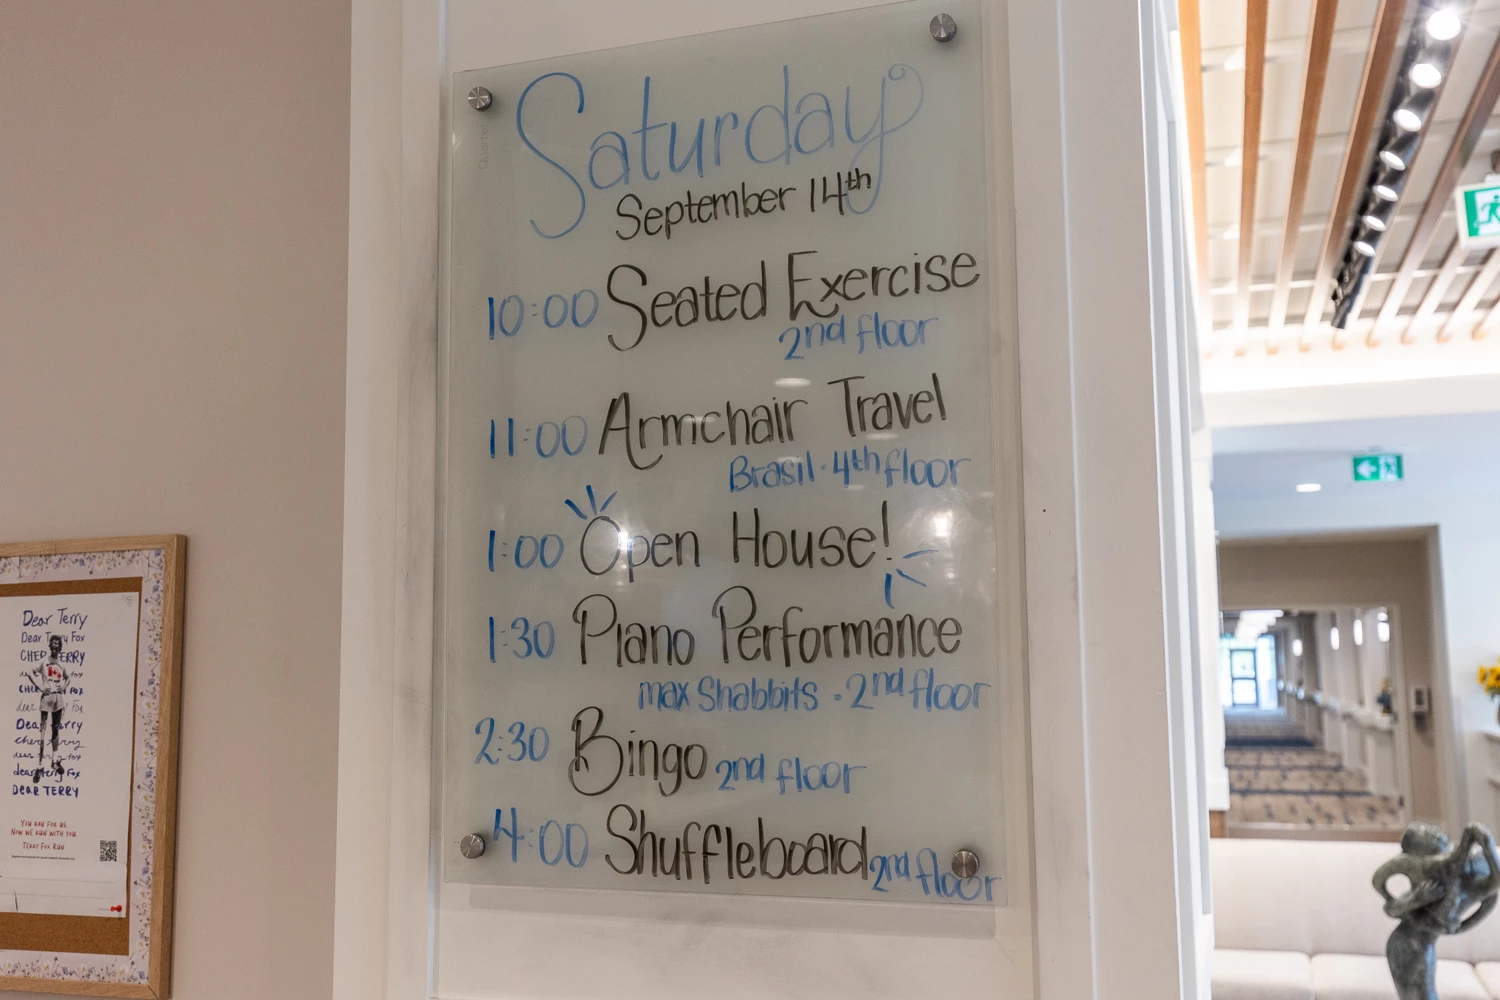 Saturday
September 14th
10:00 Seated Exercise
2nd floor
11:00 Armchair Travel
Brasil · 4th floor
1:00 Open House!
1:30 Piano Performance
max Shabbits · 2nd floor
2:30 Bingo 2nd floor
4:00 Shuffleboard 2nd floor
Dear Terry
Dear Terry Fox
CHER TERRY
Dear Terry
dear Terry Fox
DEAR TERRY
YOU RAN FOR US
NOW WE RUN WITH YOU
TERRY FOX RUN